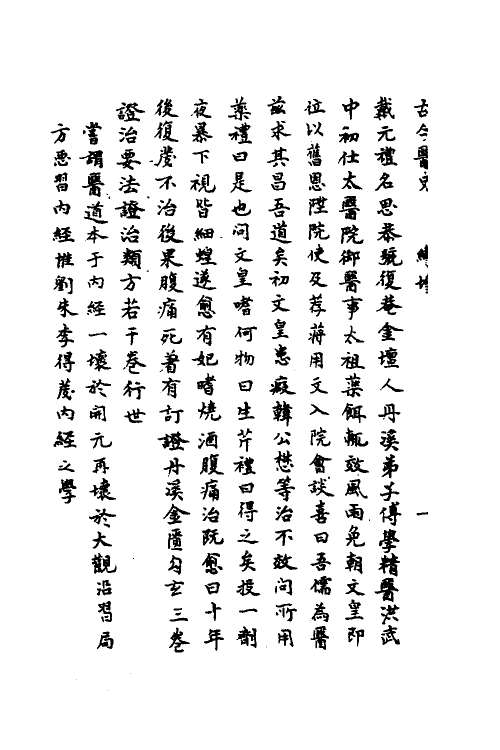 古今醫史 續增 一
戴元禮名思恭號復菴金壇人丹溪弟子傅學精醫洪武
中初仕太醫院御醫事太祖藥餌輒效風雨免朝文皇即
位以舊恩陞院使及荐蔣用文入院會談喜曰吾儒為醫
玆求其昌吾道矣初文皇患瘕韓公懋等治不效問所用
藥禮曰是也问文皇嗜何物曰生芹禮曰得之矣投一劑
夜暴下視皆細蝗遂愈有妃嗜燒酒腹痛治既愈曰十年
後復發不治後果腹痛死著有訂證丹溪金匱勾玄三卷
證治要法證治類方若干卷行世
嘗謂醫道本于內經一壞於開元再壞於大觀沿習局
方悉習內經惟劉朱李得茂內經之學